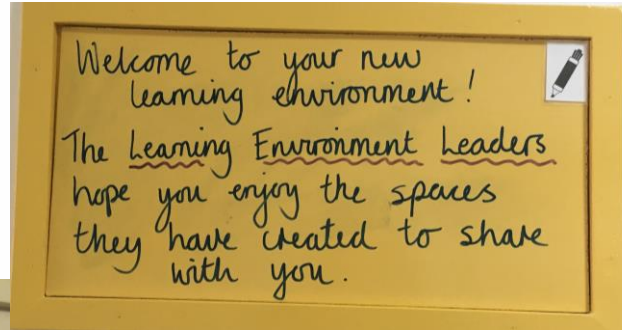 Welcome to your new
learning environment!
The Learning Environment Leaders
hope you enjoy the spaces
they have created to share
with you.